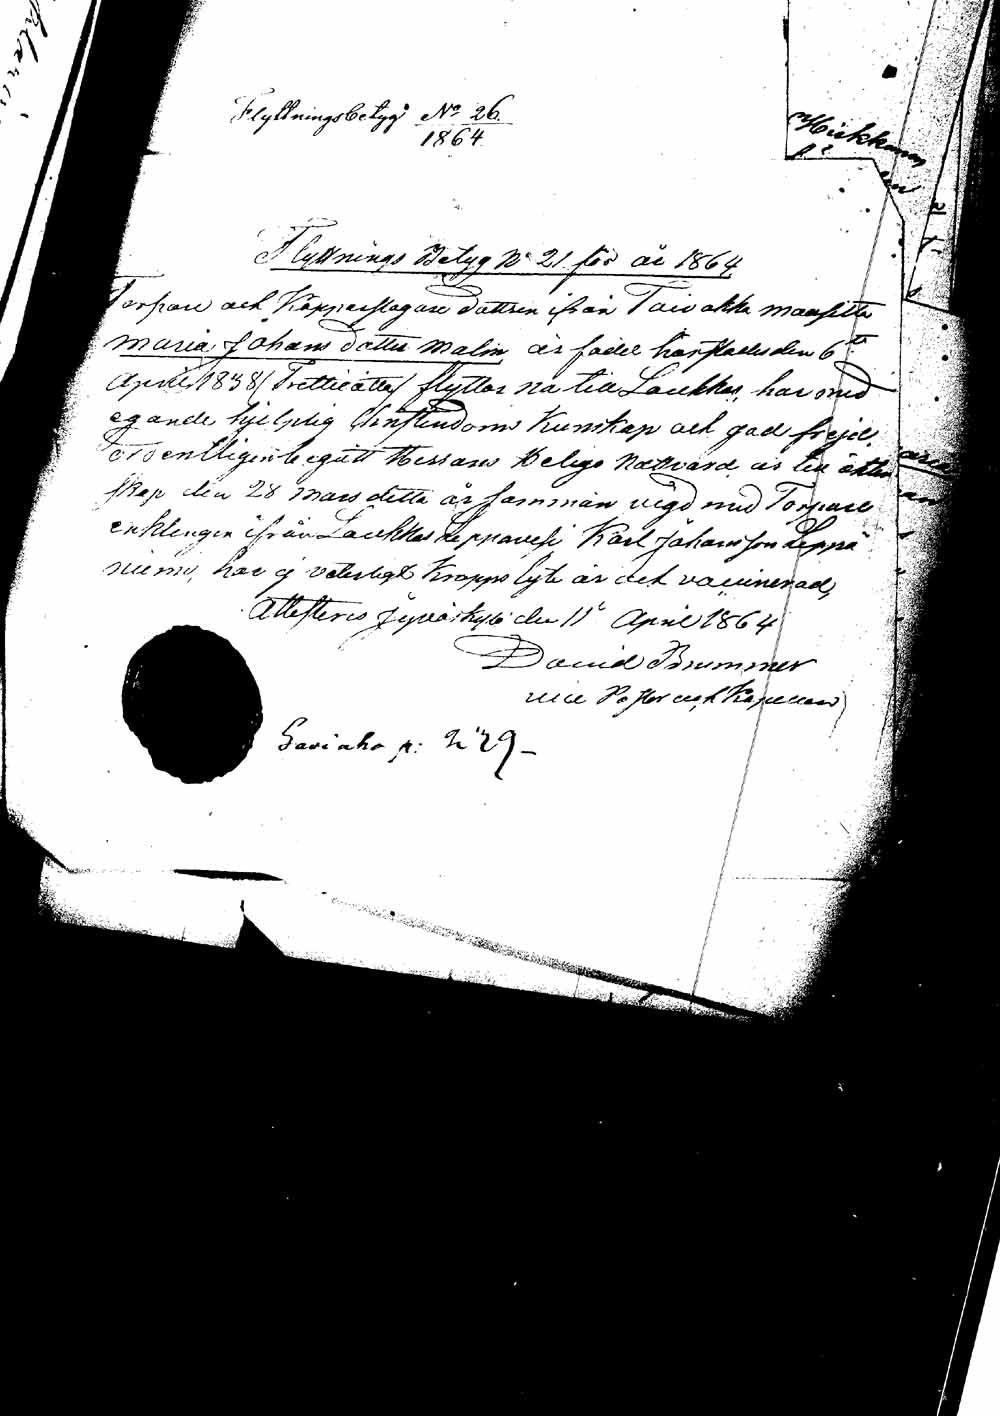 Flyttningsbetyg No 26
1864
Flyttnings Betyg No 21 för år 1864
Torpare och Kopparslagare dottren ifrån Taivakka
Maria Johans dotter Malin är född härstädes den 6te
April 1838 (Trettieåtta) flyttar nu till Laukkas, har med
egande hjelplig Christendoms Kunskap och god frejd,
ordentligen begått Herrans Helige Nattvard, är till äkten
skap den 28 Mars detta år samman vigd med Torpare
enklingen ifrån Laukkas Leppävesi Karl Johansson Leppä
niemi, har ej veterligt Kropps lyte är ock vaccinerad,
Attesteras Jyväskylä den 11 April 1864
David Brummer
vice Pastor och Kapellan
Saviaho p: No 29